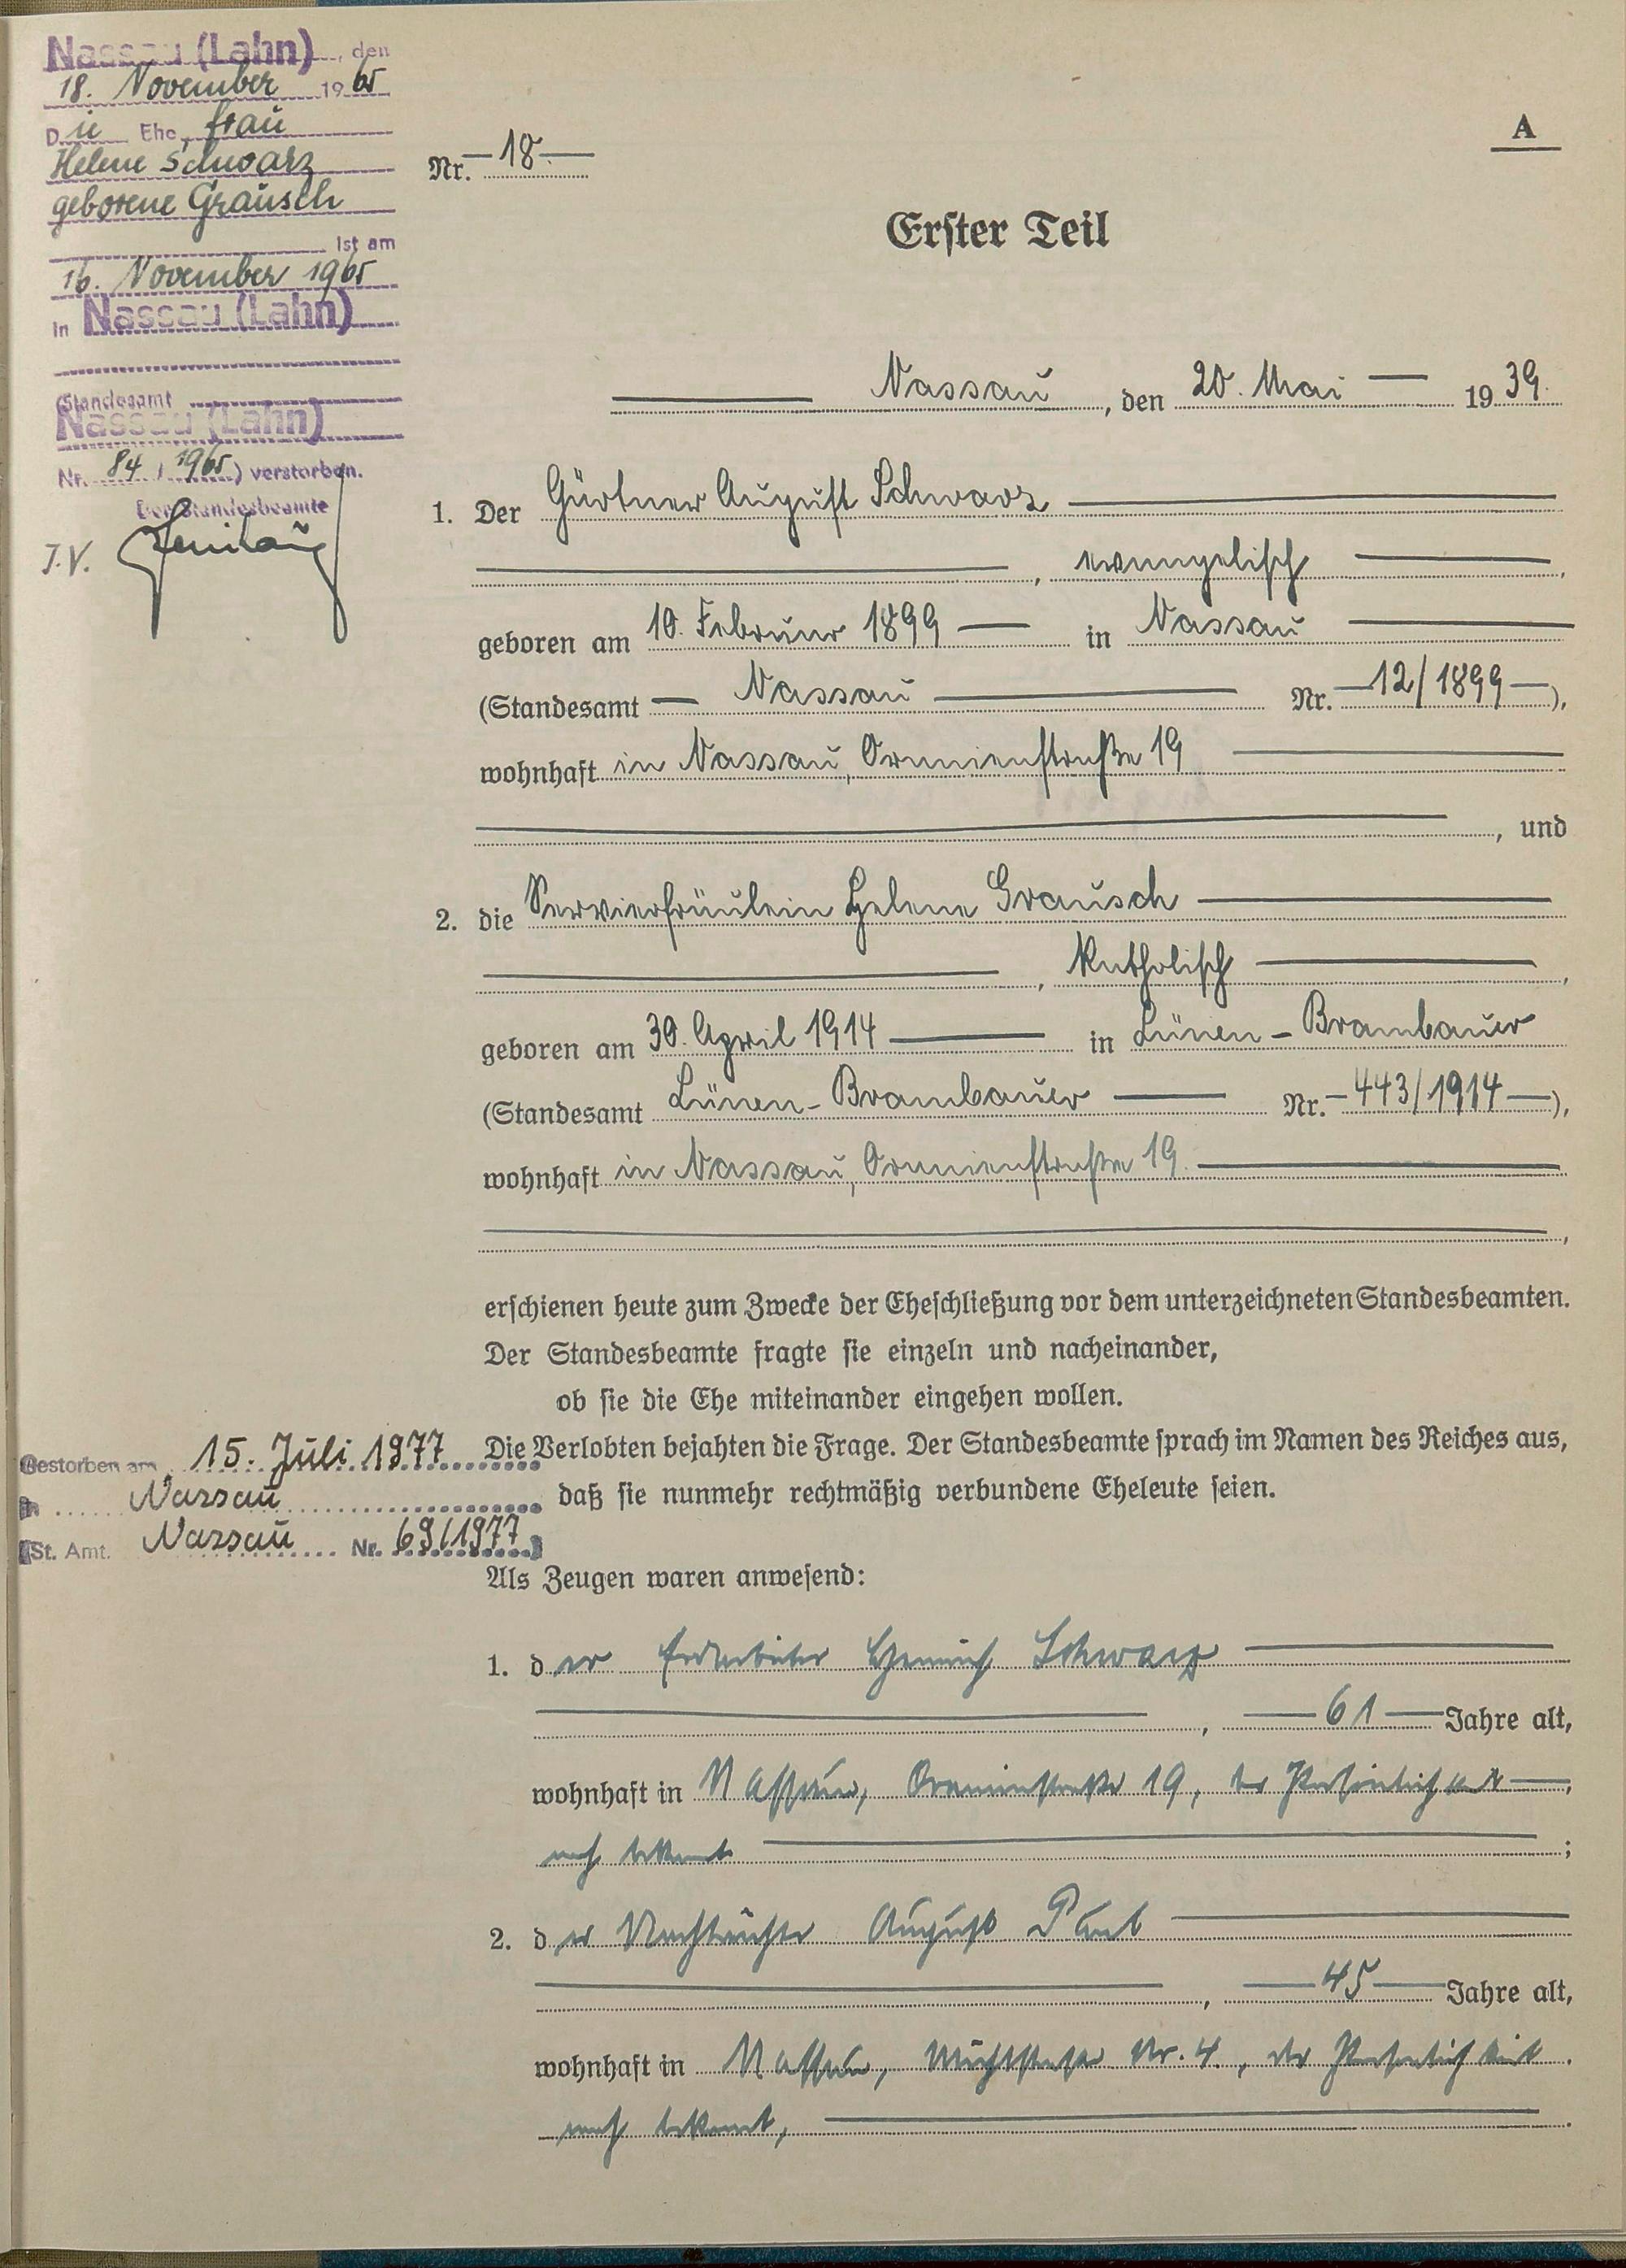 Nassau (Lahn), den
18. November 1965
Die Ehefrau
Helene Schwarz
geborene Grausch
ist am
16. November 1965
in Nassau (Lahn)
(Standesamt
Nassau (Lahn)
Nr. 84/1965) verstorben.
Der Standesbeamte
J.V.
A
Nr. 18
Erster Teil
Nassau, den 20. Mai 1939.
1. Der Gärtner August Schwarz
, evangelisch,
geboren am 10. Februar 1899 in Nassau
(Standesamt Nassau Nr. 12/1899),
wohnhaft in Nassau, Oranienstraße 19
, und
2. die Servierfräulein Helene Grausch
, katholisch,
geboren am 30. April 1914 in Lünen-Brambauer
(Standesamt Lünen-Brambauer Nr. 443/1914),
wohnhaft in Nassau, Oranienstraße 19.
,
erschienen heute zum Zwecke der Eheschließung vor dem unterzeichneten Standesbeamten.
Der Standesbeamte fragte sie einzeln und nacheinander,
ob sie die Ehe miteinander eingehen wollen.
Die Verlobten bejahten die Frage. Der Standesbeamte sprach im Namen des Reiches aus,
daß sie nunmehr rechtmäßig verbundene Eheleute seien.
Gestorben am 15. Juli 1977
in Nassau
(St. Amt. Nassau Nr. 69/1977)
Als Zeugen waren anwesend:
1. der Erdarbeiter Heinrich Schwarz
, 61 Jahre alt,
wohnhaft in Nassau, Oranienstraße 19, der Persönlichkeit
nach bekannt ;
2. der August
, 45 Jahre alt,
wohnhaft in Nassau, Nr. 4, der Persönlichkeit
nach bekannt, .